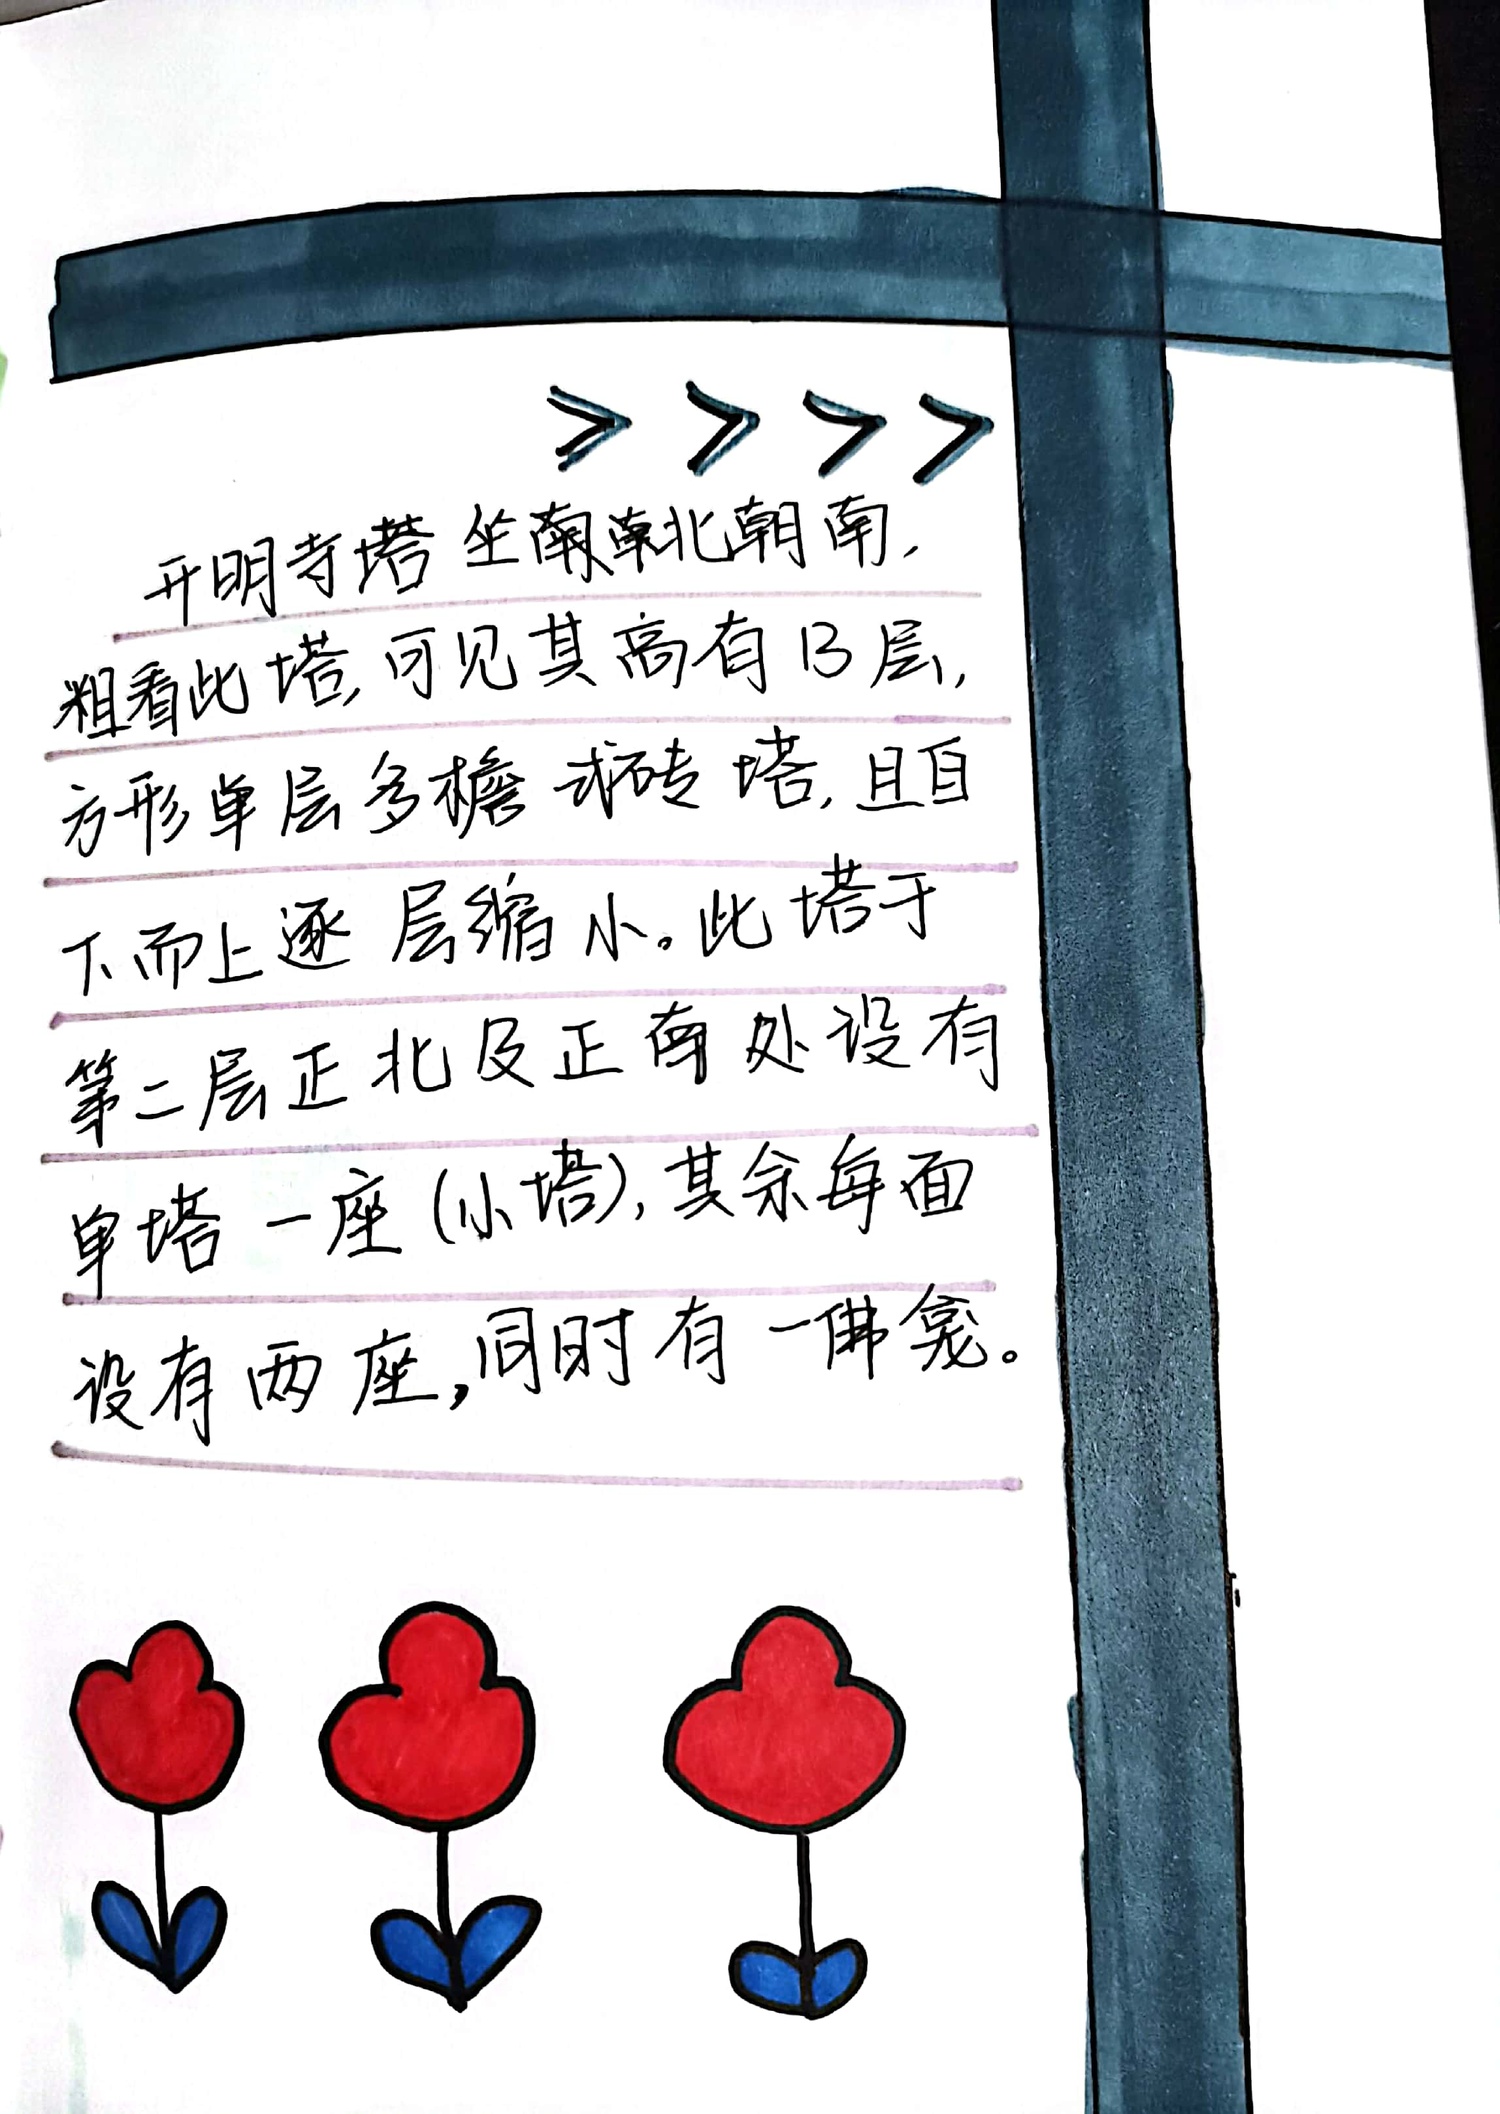 > > > >
开明寺塔坐南南北朝南,
粗看此塔,可见其高有13层,
方形单层多檐式砖塔,且自
下而上逐层缩小。此塔于
第二层正北及正南处设有
单塔一座(小塔),其余每面
设有两座,同时有一佛龛。